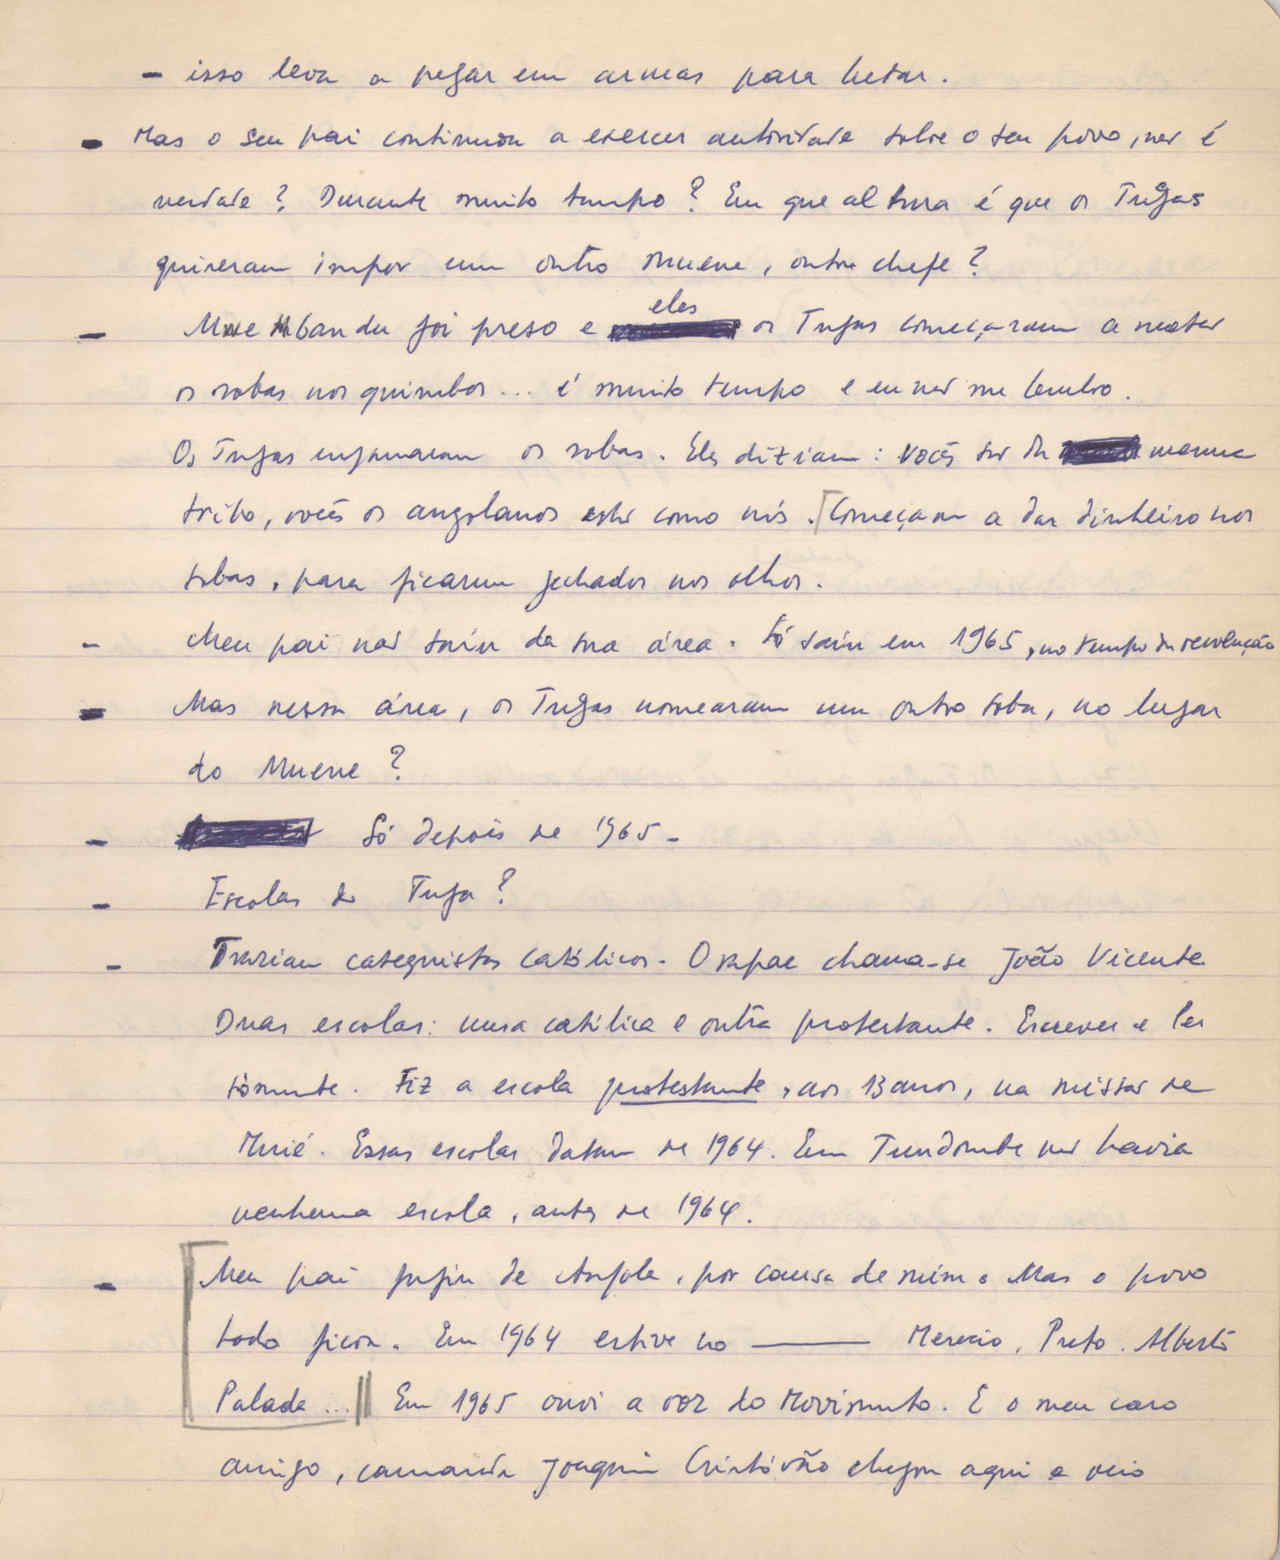 - isso leva a pegar em armas para lutar.
- Mas o seu pai continuou a exercer autoridade sobre o seu povo, não é
verdade? Durante muito tempo? Em que altura é que os Tugas
quiseram impor um outro Muene, outro chefe?
eles
- Mwe Mbandu foi preso e os Tugas começaram a matar
os sobas nos quimbos... é muito tempo e eu não me lembro.
Os Tugas enganaram os sobas. Eles diziam: vocês são da mesma
tribo, vocês os angolanos são como nós. [Começaram a dar dinheiro nos
sobas, para ficarem fechados nos olhos.
- Meu pai não saiu da sua área. Só saiu em 1965, no tempo da revolução
- Mas nessa área, os Tugas nomearam um outro soba, no lugar
do Muene?
- Só depois de 1965 -
- Escolas do Tuga?
- Traziam catequistas católicos. O rapaz chama-se João Vicente
Duas escolas: uma católica e outra protestante. Escrever e ler
sòmente. Fiz a escola protestante, aos 13 anos, na missão de
Muié. Essas escolas datam de 1964. Em não havia
nenhuma escola, antes de 1964.
- [Meu pai fugiu de Angola, por causa de mim. Mas o povo
todo ficou. Em 1964 estive no ——— Preto. Alberto
Palada...] || Em 1965 ouvi a voz do Movimento. E o meu caro
amigo, camarada Joaquim Cristóvão chegou aqui e veio